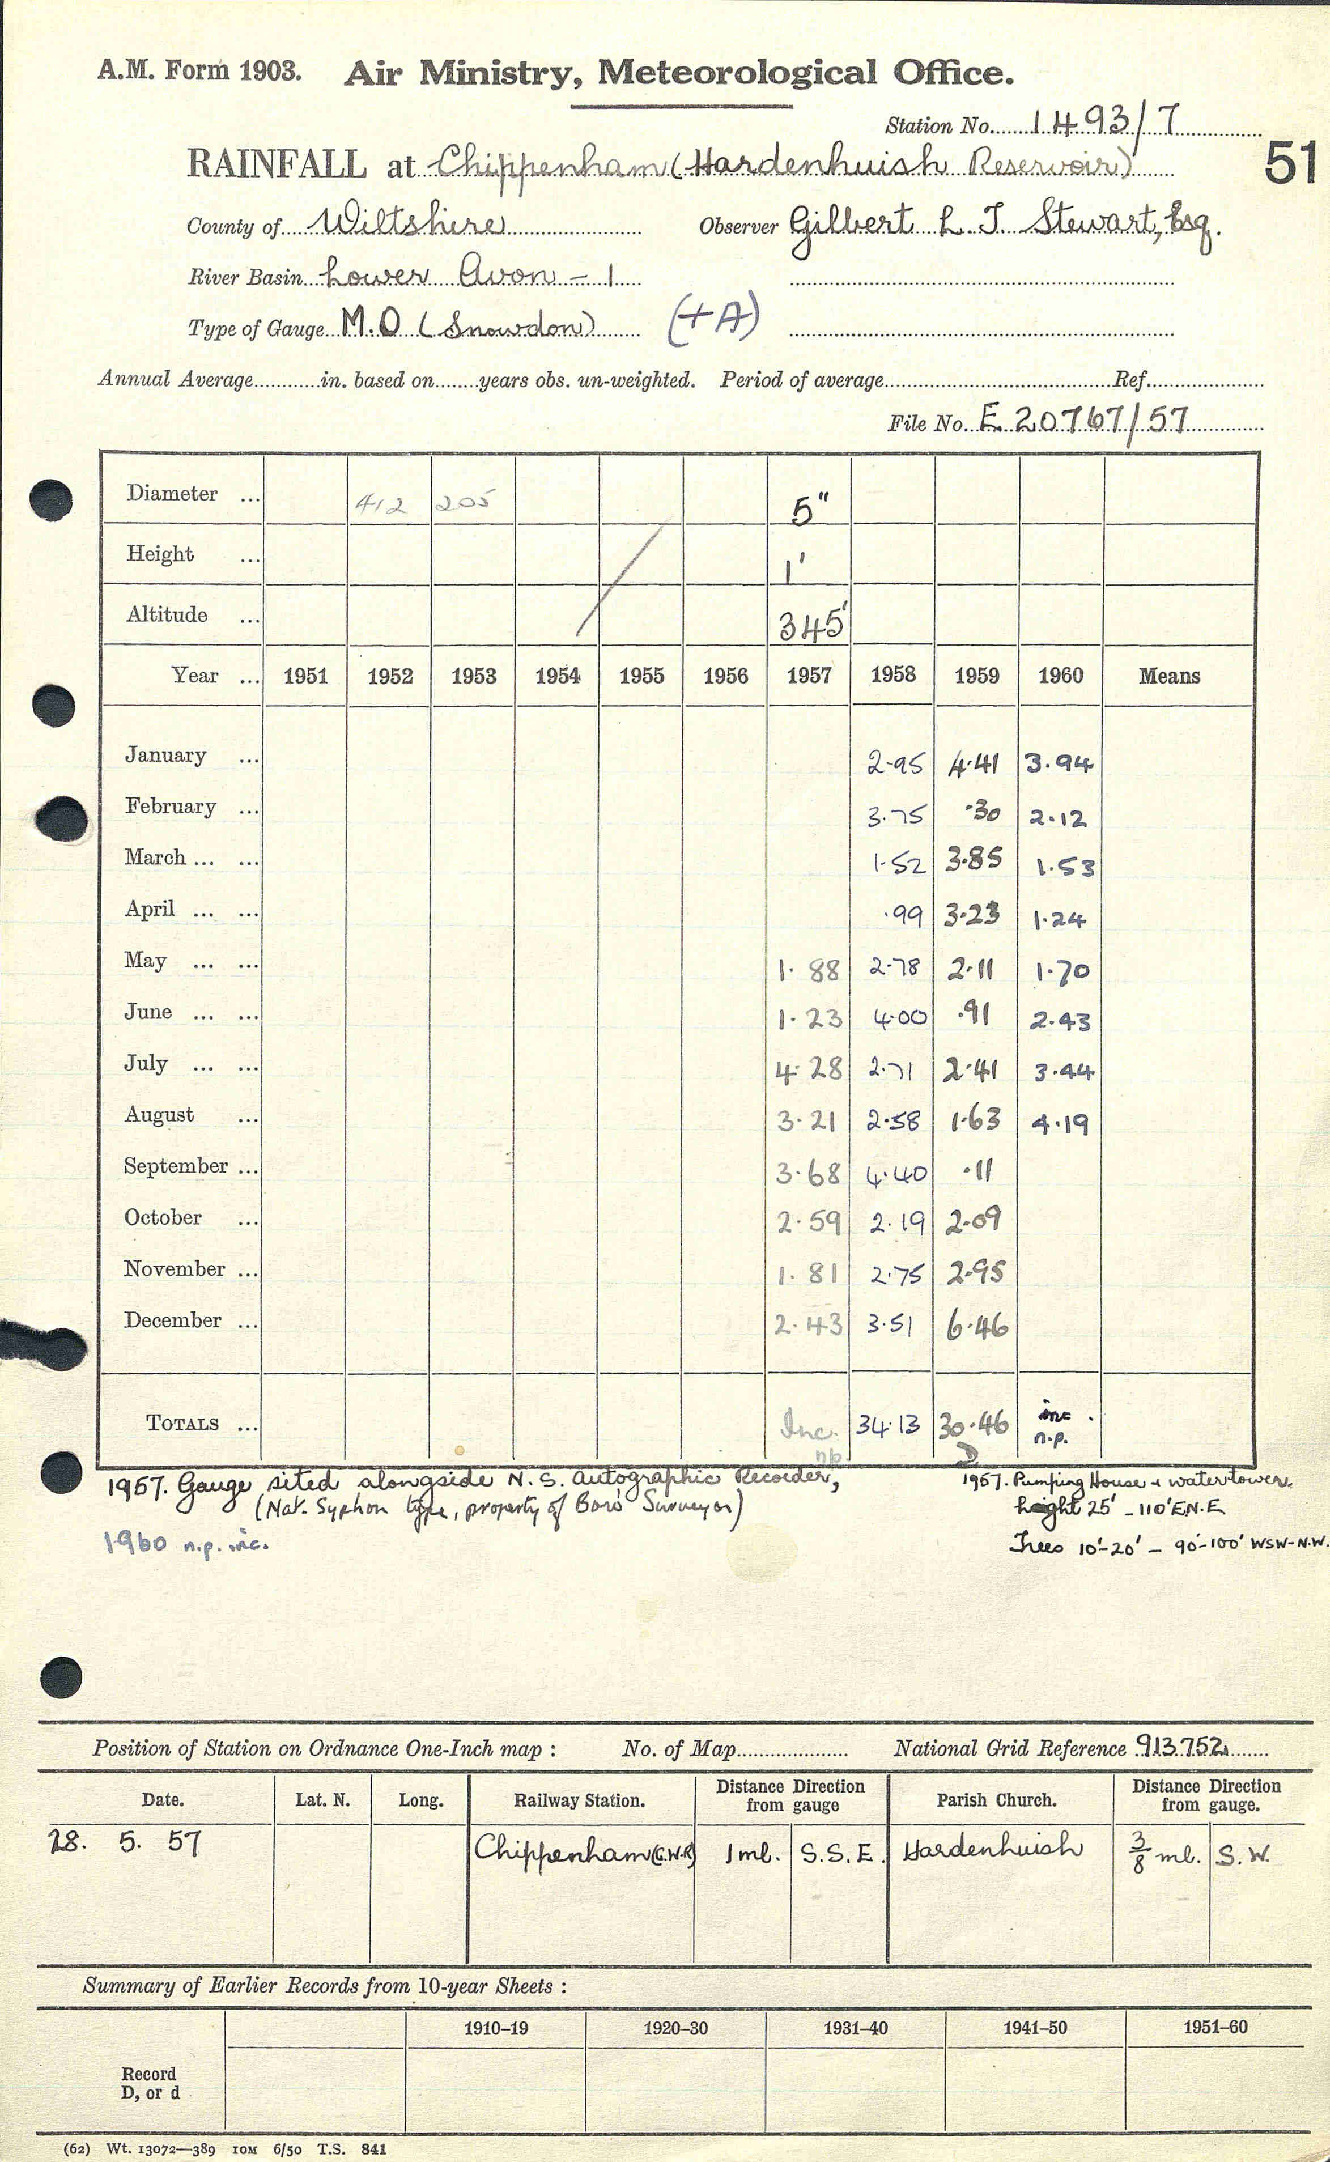 A.M. Form 1903. Air Ministry, Meteorological Office.
Station No. 1493/7
RAINFALL at Chippenham (Hardenhuish Reservoir)
51
County of Wiltshire Observer Gilbert L. T. Stewart, Esq.
River Basin Lower Avon - 1
Type of Gauge M.O (Snowdon) (+A)
Annual Average in. based on years obs. un-weighted. Period of average Ref.
File No. E 20767/57
Diameter ... 412 205 5"
Height ... 1'
Altitude ... 345'
Year ... 1951 1952 1953 1954 1955 1956 1957 1958 1959 1960 Means
January ... 2.95 4.41 3.94
February ... 3.75 .30 2.12
March ... ... 1.52 3.85 1.53
April ... ... .99 3.23 1.24
May ... ... 1.88 2.78 2.11 1.70
June ... ... 1.23 4.00 .91 2.43
July ... ... 4.28 2.71 2.41 3.44
August ... 3.21 2.58 1.63 4.19
September ... 3.68 4.40 .11
October ... 2.59 2.19 2.09
November ... 1.81 2.75 2.95
December ... 2.43 3.51 6.46
TOTALS ... Inc. 34.13 30.46 inc.
n.p.
D
1957. Gauge sited alongside N.S. Autographic Recorder,
(Nat. Syphon type, property of Boro' Surveyor)
1960 n.p. inc.
1957. Pumping House & water tower.
height 25' - 110' E.N.E
Trees 10'-20' - 90'-100' WSW-N.W.
Position of Station on Ordnance One-Inch map : No. of Map National Grid Reference 913.752
Date. Lat. N. Long. Railway Station. Distance Direction from gauge Parish Church. Distance Direction from gauge.
28. 5. 57 Chippenham (G.W.R) 1 ml. S.S.E. Hardenhuish 3/8 ml. S.W.
Summary of Earlier Records from 10-year Sheets :
1910–19 1920–30 1931–40 1941–50 1951–60
Record
D, or d
(62) Wt. 13072—389 10M 6/50 T.S. 841